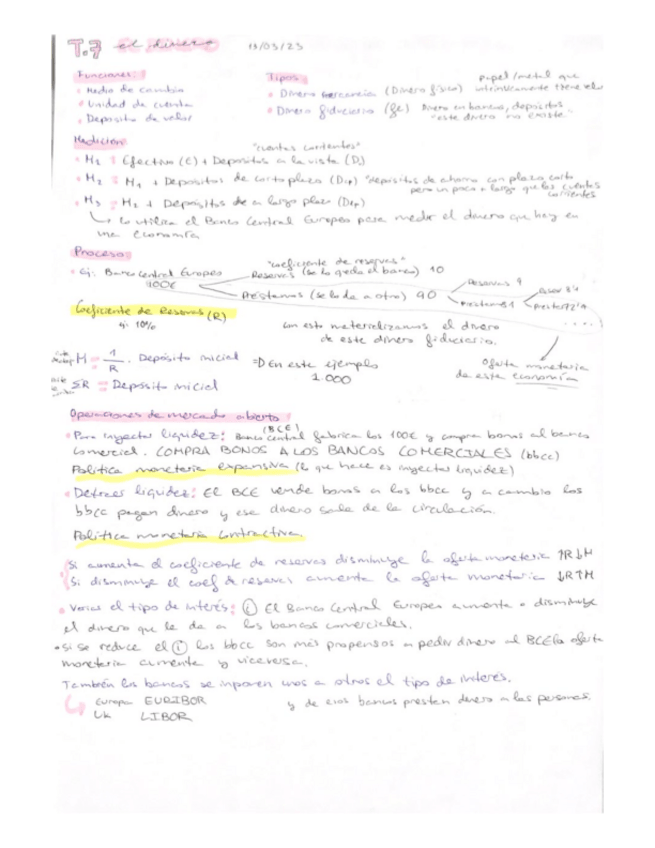 T.7 el dinero 13/03/23
Funciones: Tipos
• Medio de cambio • Dinero mercancia (Dinero físico) papel/metal que intrínsicamente tiene valor
• Unidad de cuenta • Dinero fiduciario (fe) Dinero en bancos, depósitos
• Deposito de valor "este dinero no existe."
Medición "cuentas corrientes"
• M1 = Efectivo (E) + Depositos a la vista (D)
• M2 = M1 + Depositos de corto plazo (Dcp) "depósitos de ahorro con plazo corto
pero un poco + largo que las cuentas corrientes
• M3 = M2 + Depósitos de a largo plazo (Dep)
↳ lo utiliza el Banco Central Europeo para medir el dinero que hay en
una economía
Proceso: "coeficiente de reservas"
• ej: Banco Central Europeo Reservas (se lo queda el banco) 10
100€ Préstamos (se lo da a otro) 90 Reservas 9
Coeficiente de Reservas (R)
ej. 10% con esto materializamos el dinero ....
de este dinero fiduciario.
M = 1/R . Depósito inicial => En este ejemplo Oferta monetaria
1.000 de esta economía
ΣR = Depósito inicial
Operaciones de mercado abierto
• Para inyectar liquidez: Banco central (BCE) fabrica los 100€ y compra bonos al banco
comercial. COMPRA BONOS A LOS BANCOS COMERCIALES (bbcc)
Política monetaria expansiva (lo que hace es inyectar liquidez)
• Detraer liquidez: El BCE vende bonos a los bbcc y a cambio los
bbcc pagan dinero y ese dinero sale de la circulación.
Política monetaria contractiva.
Si aumenta el coeficiente de reservas disminuye la oferta monetaria ↑R↓M
Si disminuye el coef de reservas aumenta la oferta monetaria ↓R↑M
• Varias el tipo de interés: (i) El Banco Central Europeo aumenta o disminuye
el dinero que le da a los bancos comerciales.
• Si se reduce el (i) los bbcc son más propensos a pedir dinero al BCE (la oferta
monetaria aumente y viceversa.
También los bancos se imponen unos a otros el tipo de interés.
↳ Europa EURIBOR y de esos bancos presten dinero a las personas.
Uk LIBOR